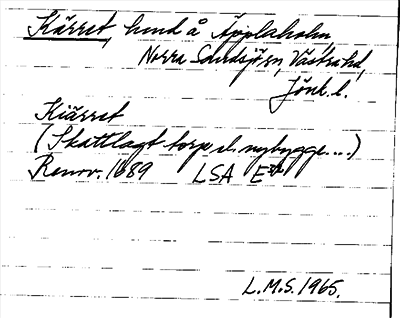 Kärret, hmd å Äpplaholm,
Norra Sandsjö sn, Västra hd,
Jönk. l.
Kiärret
(Skattlagt torp el. nybygge...)
Renov. 1689 LSA E
L.M.S. 1965.